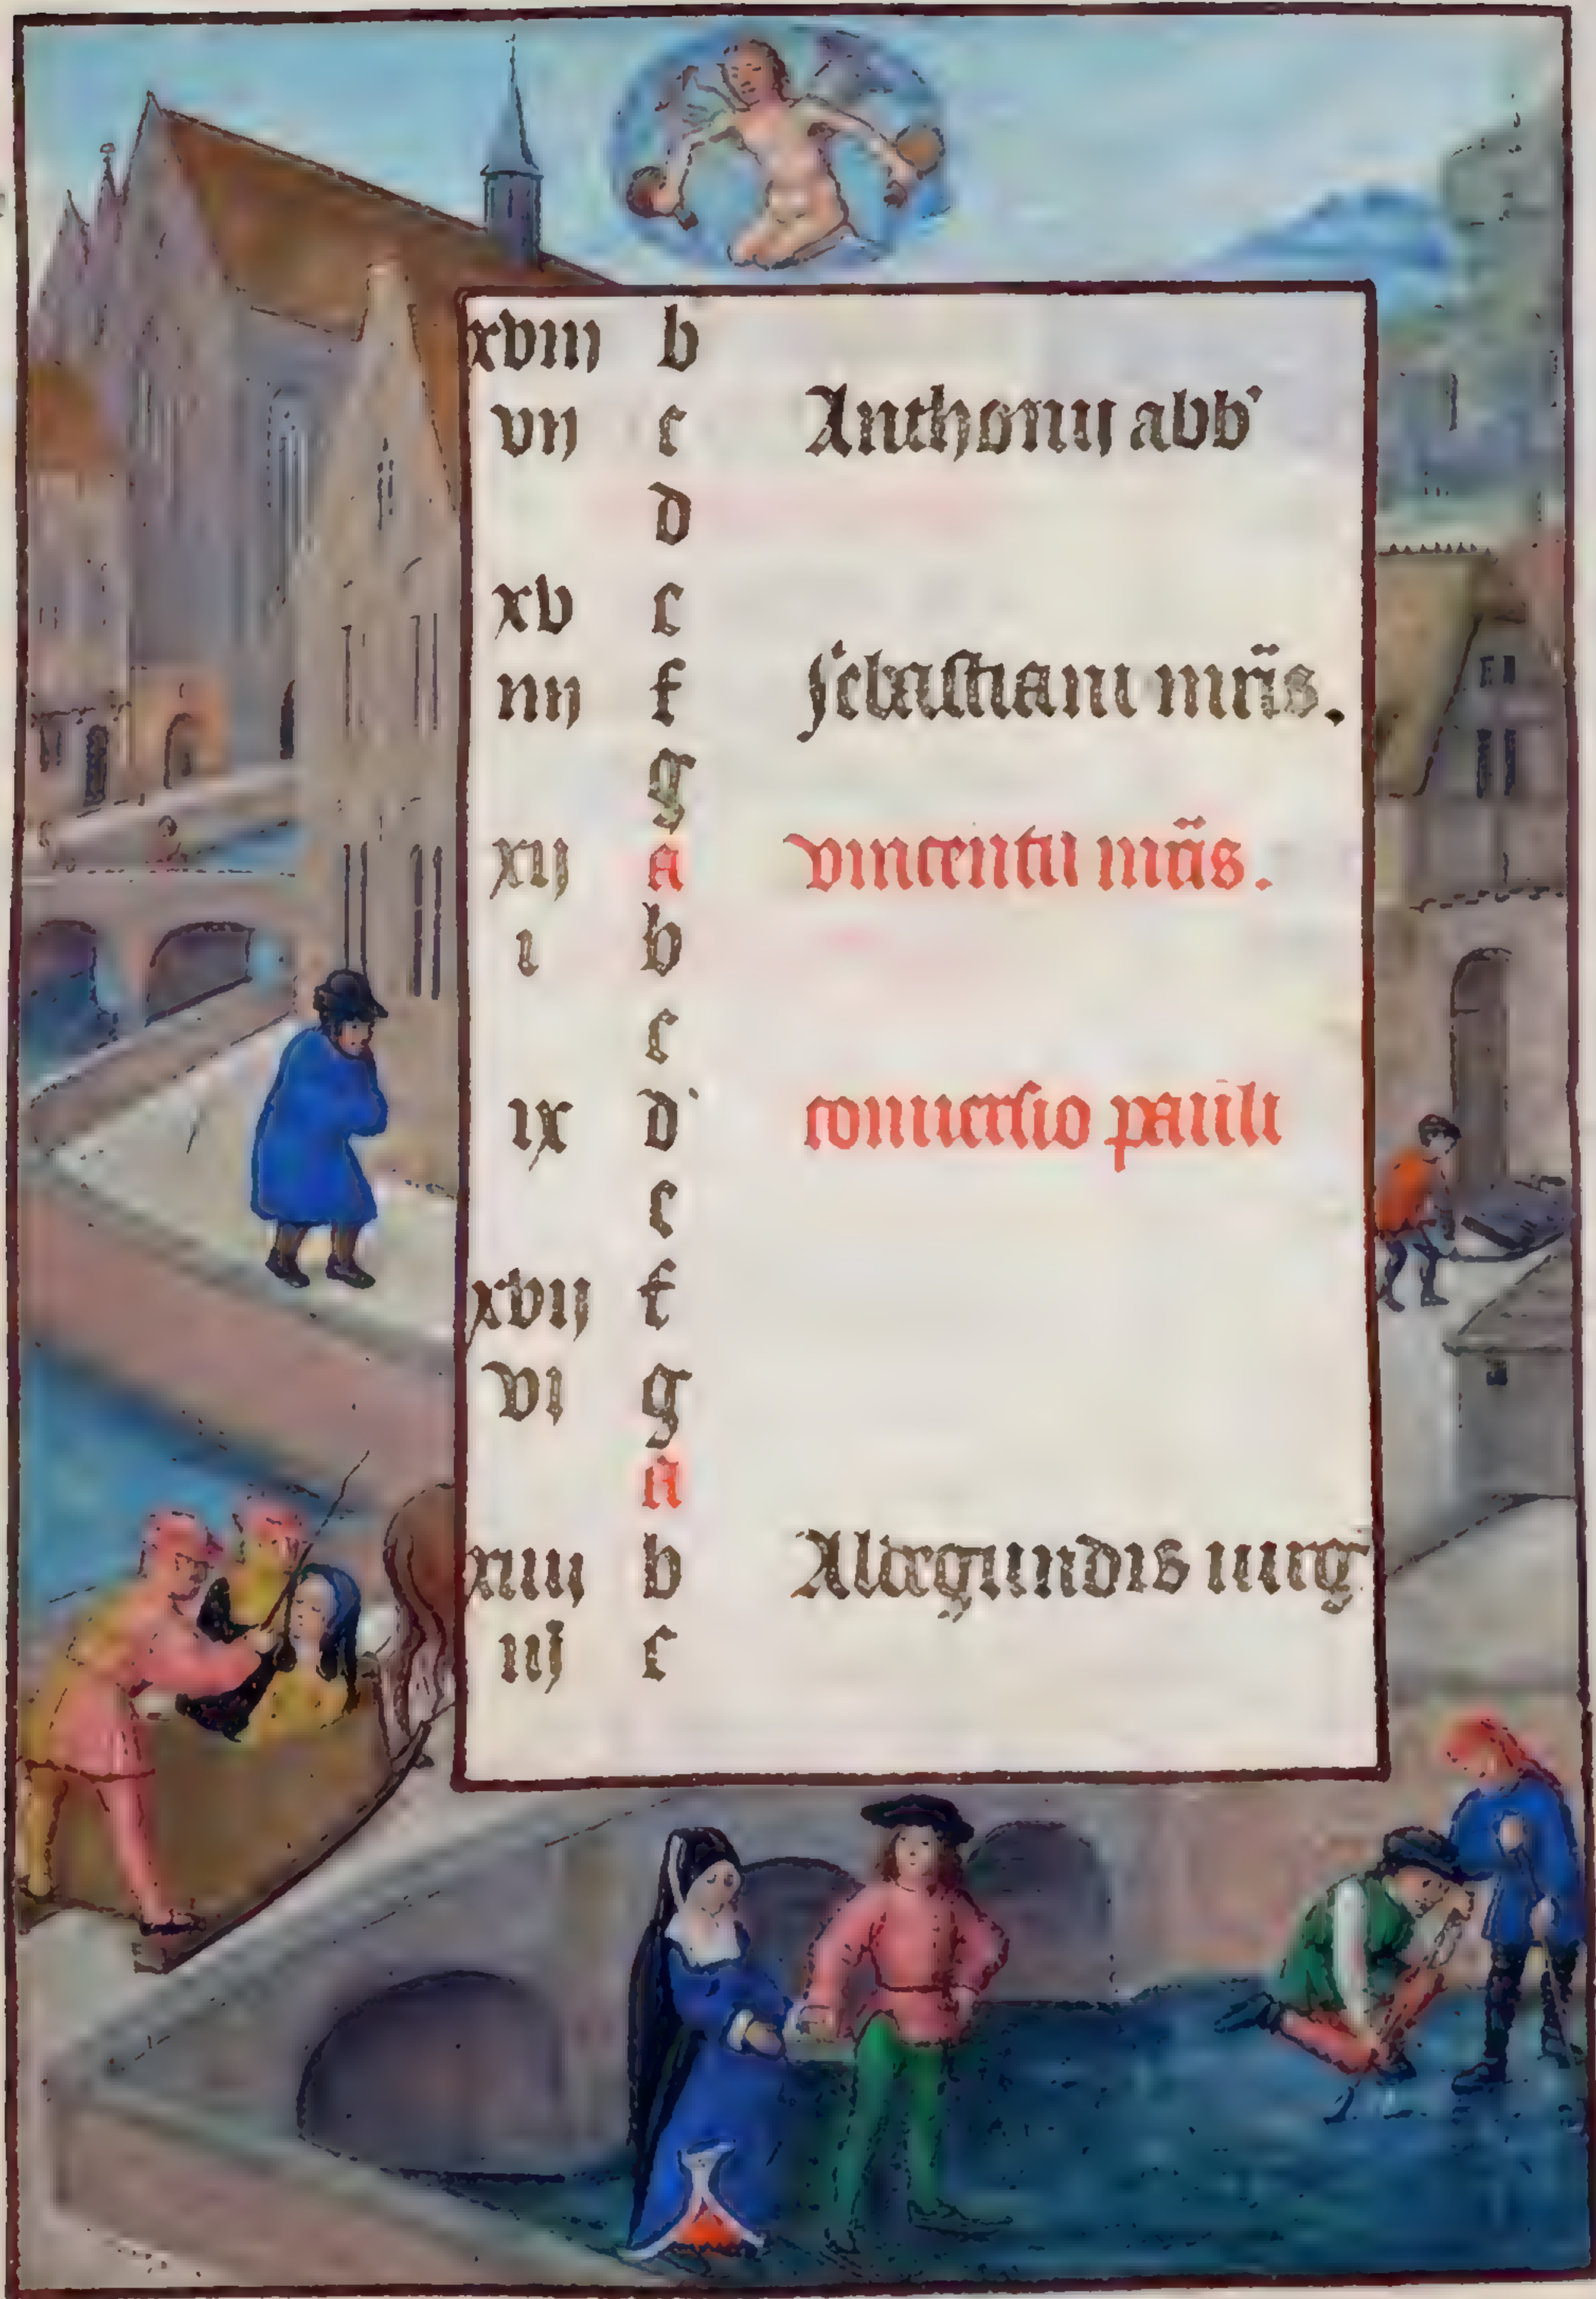 xviij b
vij c Anthonij abb'
d
xv e
iiij f sebastiani mr̃is.
g
xij a vincentii mr̃is.
i b
c
ix d conuersio pauli
e
xvij f
vi g
a
xiiij b Aldegundis uirg
iij c